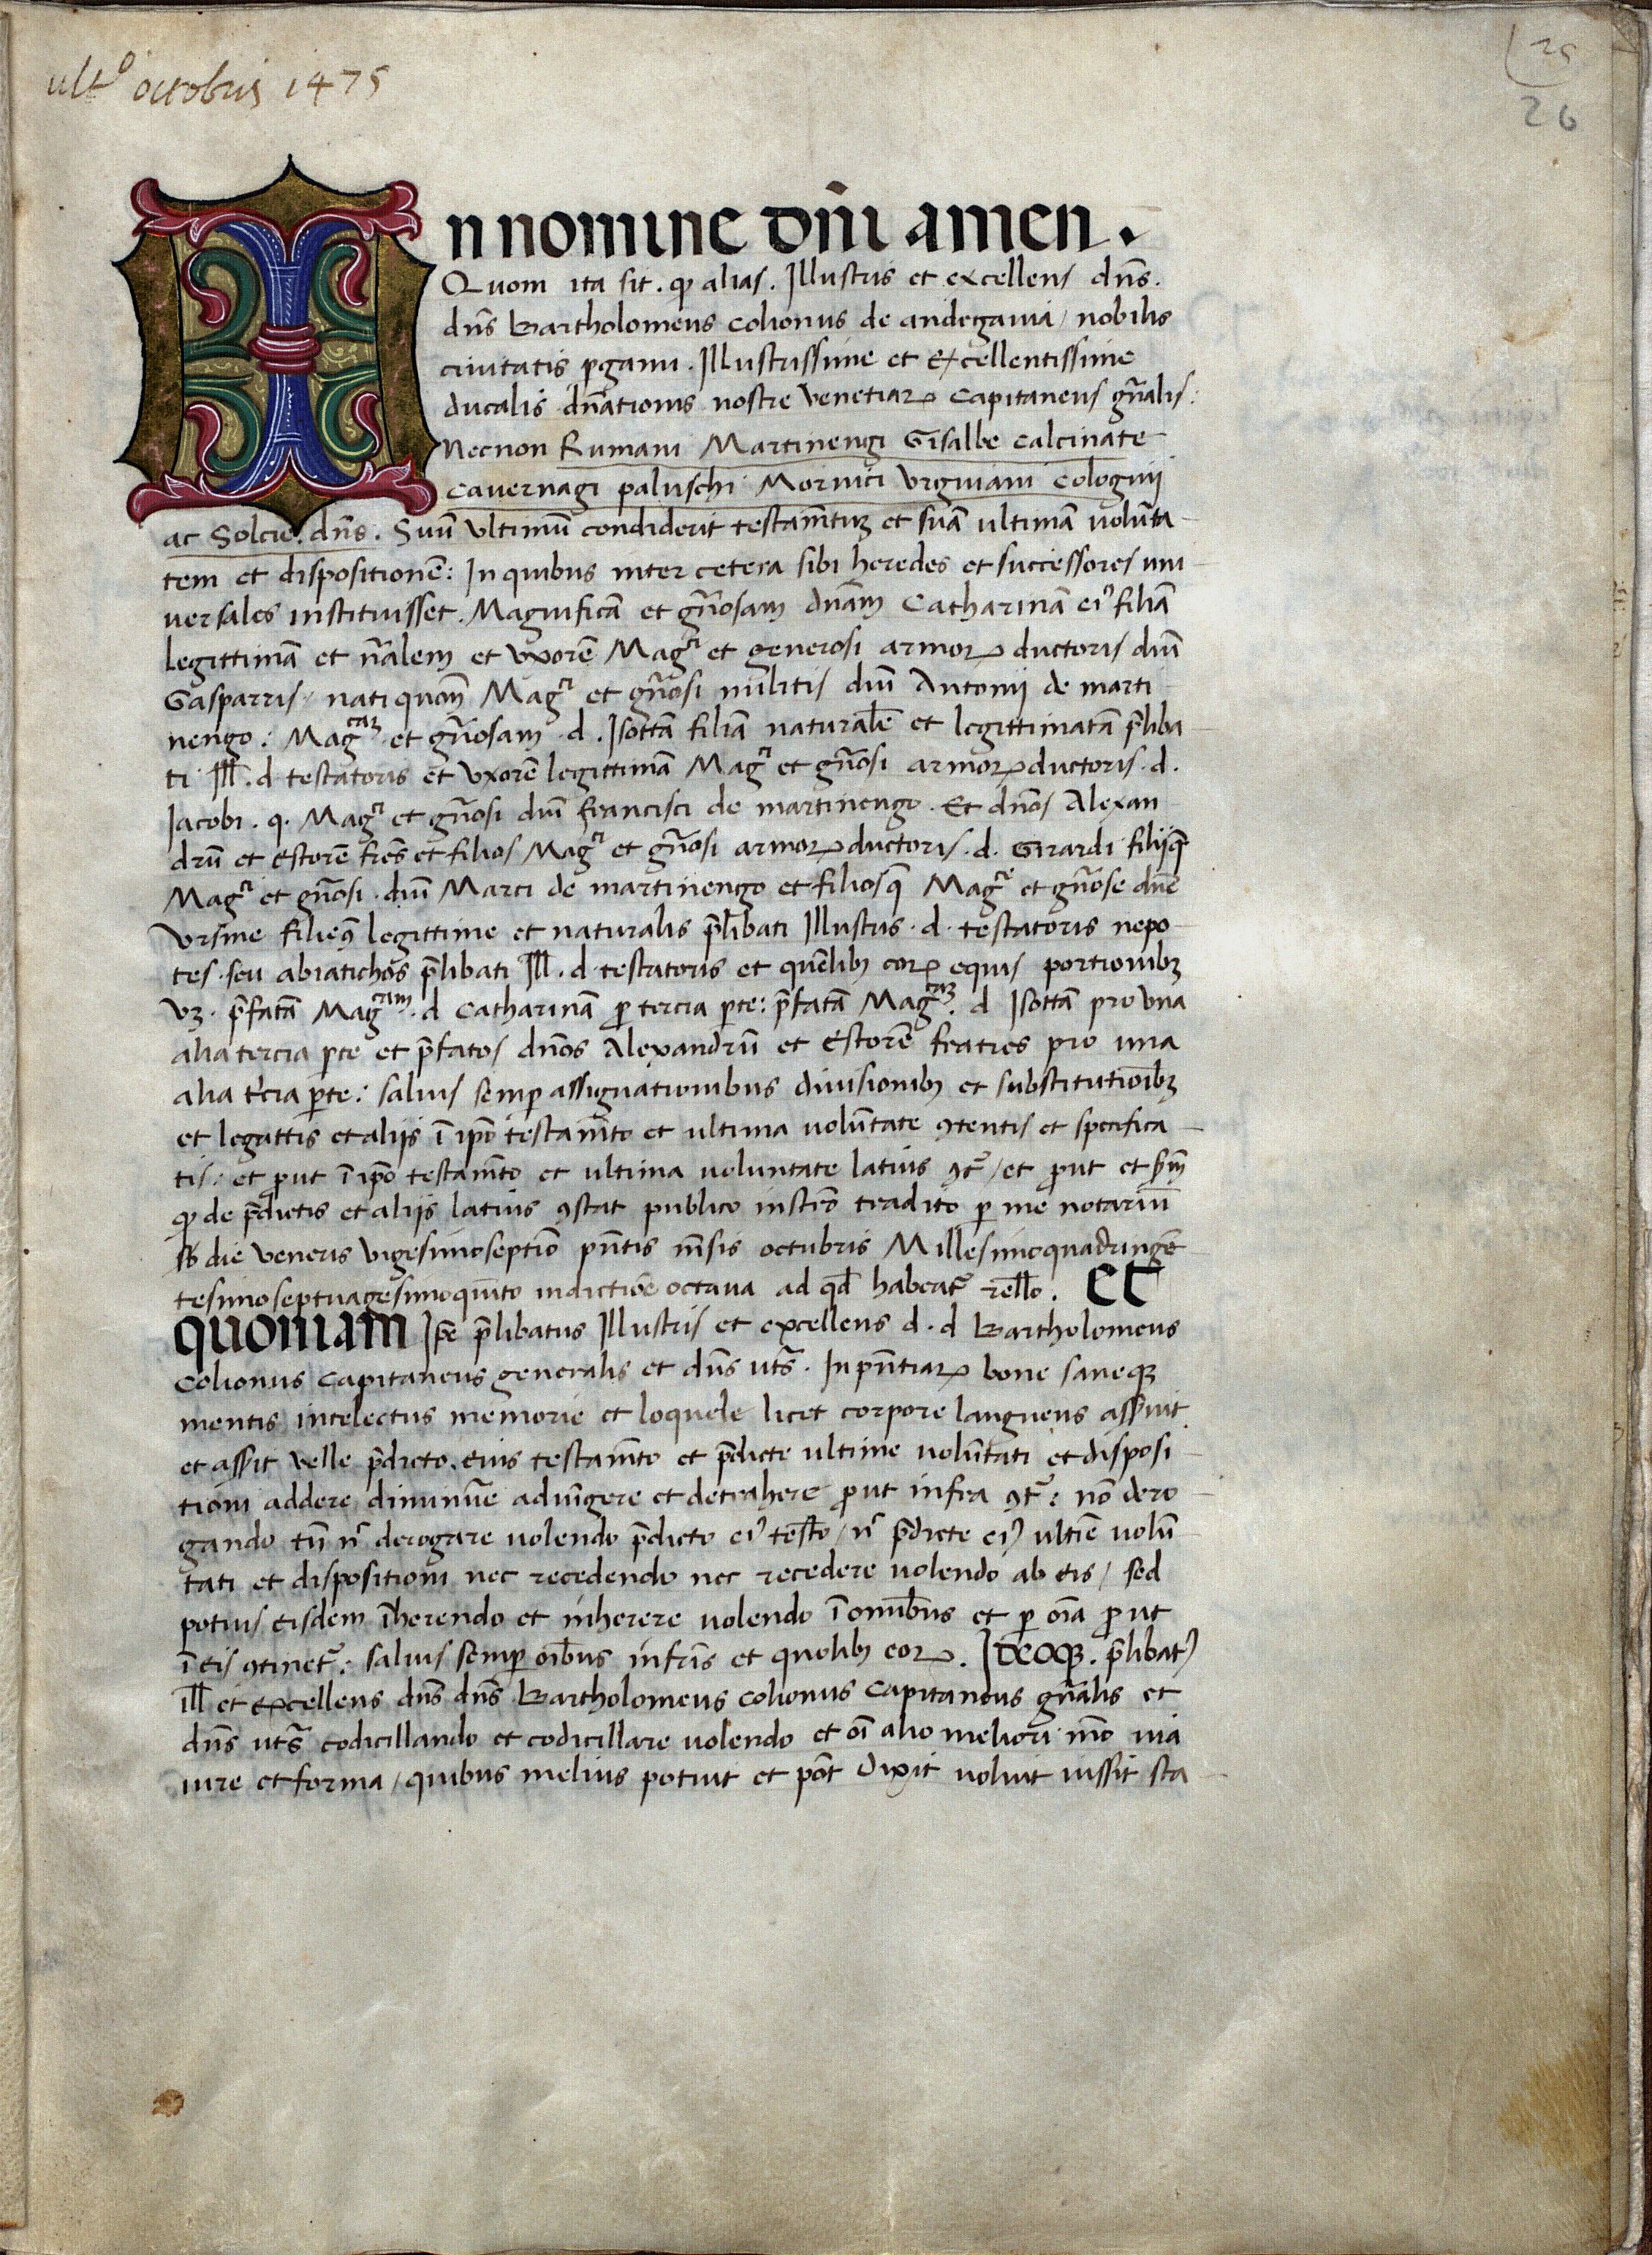 ult.º octobris 1475
25
26
In nomine dn̄i amen.
Quom ita sit. ꝙ alias. Illustris et excellens dn̄s.
dn̄s Bartholomeus colionus de andegauia / nobilis
ciuitatis ꝑgami. Illustrissime et excellentissime
ducalis dn̄ationis nostre venetiaꝝ capitaneus gn̄alis:
Necnon Rumani Martinengi Gisalbe calcinate
cauernagi paluschi Mornici vrgniani colognij
ac Solcie. dn̄s. Suū vltimū condiderit testam̄tuꝫ et suā ultimā volūta
tem et dispositionē: In quibus inter cetera sibi heredes et successores uni
uersales instituisset. Magnificā et gn̄osam dnām Catharinā eiꝰ filiā
legittimā et nr̄alem et vxorē Mag.ci et generosi armoꝝ ductoris dn̄i
Gasparris / nati quom̄ Mag.ci et gn̄osi militis dn̄i Antonij de marti
nengo: Mag.caꝫ et gn̄osam d. Isottā filiā naturalē et legittimatā p̄liba
ti Ill. d testatoris et vxorē legittimā Mag.ci et gn̄osi armoꝝ ductoris. d.
Jacobi. q. Mag.ci et gn̄osi dn̄i francisci de martinengo. Et dn̄os Alexan
drū et estorē fr̄es et filios Mag.ci et gn̄osi armoꝝ ductoris. d. Girardi filijqꝫ
Mag.ci et gn̄osi. dn̄i Marci de martinengo et filiosqꝫ Mag.ce et gn̄ose dn̄e
vrsine filieqꝫ legittime et naturalis p̄libati Illustris. d. testatoris nepo
tes. seu abiatichos p̄libati Ill. d. testatoris et quēlibꝫ eoꝝ equis portionibꝫ
vꝫ. p̄fatā Mag.cam. d Catharinā ꝓ tercia ꝑte: p̄fatā Mag.caꝫ. d Isottā pro vna
alia tercia ꝑte et p̄fatos dn̄os Alexandrū et estorē fratres pro una
alia t'cia ꝑte: saluis semꝑ assignationibus diuisionibꝫ et substitutioībꝫ
et legattis et alijs ī ip̄o testam̄to et ultima volūtate ꝯtentis et specifica
tis: et ꝓut ī ip̄o testam̄to et ultima voluntate latius ꝯt̄r / et ꝓut et scd̄m
ꝙ de p̄dictis et alijs latius ꝯstat publico instro tradito ꝑ me notariū
sb die veneris vigesimoseptīo pn̄tis m̄sis octubris Millesimoquadringē
tesimoseptuagesimoquīto indictiōe octaua ad qd̄ habeat̄ rel̄lo. Et
quoniam Ip̄e p̄libatus Illustris et excellens d. d Bartholomeus
colionus capitaneus generalis et dn̄s vts̄. In pn̄tiaꝝ bone saneqꝫ
mentis intelectus memorie et loquele licet corpore languens assuit
et assit velle p̄dicto eius testam̄to et p̄dicte ultime volūtati et disposi
tioni addere diminue᷑ adiūgere et detrahere ꝓut infra ꝯt̄r: nō dero
gando tn̄ nͨ derogare volendo p̄dicto eiꝰ test̄o / nͨ p̄dicte eiꝰ ultīe volū
tati et dispositioni nec recedendo nec recedere volendo ab eis / sed
potius eisdem īherendo et inherere volendo ī omībus et ꝑ oīa ꝓut
ī eis ꝯtinet᷑: saluis semꝑ oībus infr̄is et quolibꝫ eoꝝ. Ideoqꝫ. p̄libatꝰ
ill̄ et excellens dn̄s dn̄s Bartholomeus colionus capitaneus gn̄alis et
dn̄s vts̄ codicillando et codicillare volendo et oī alio meliori m̄o via
iure et forma / quibus melius potuit et pōt dixit voluit iussit sta